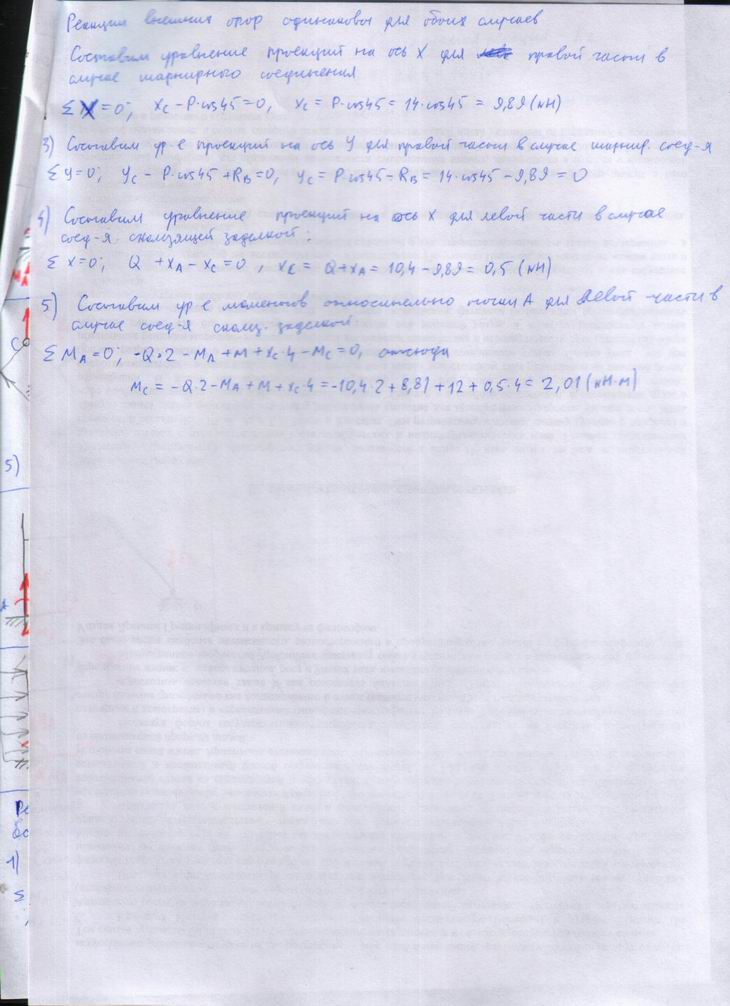 Реакции внешних опор одинаковы для обоих случаев
Составим уравнение проекций на ось X для правой части в
случае шарнирного соединения
Σ X=0; Xc - P·cos45=0, Xc = P·cos45 = 14·cos45 = 9,89 (кН)
3) Составим ур-е проекций на ось Y для правой части в случае шарнир. соед-я
Σ Y=0; Yc - P·cos45 + RB=0, Yc = P·cos45 - RB = 14·cos45 - 9,89 = 0
4) Составим уравнение проекций на ось X для левой части в случае
соед-я скользящей заделкой:
Σ X=0; Q + XA - Xc = 0, Xc = Q + XA = 10,4 - 9,89 = 0,5 (кН)
5) Составим ур-е моментов относительно точки A для левой части в
случае соед-я скольз. заделкой.
Σ MA=0; -Q·2 - MA + M + Xc·4 - Mc = 0, отсюда
Mc = -Q·2 - MA + M + Xc·4 = -10,4·2 + 8,81 + 12 + 0,5·4 = 2,01 (кН·м)
C
5)
A
1)
Σ